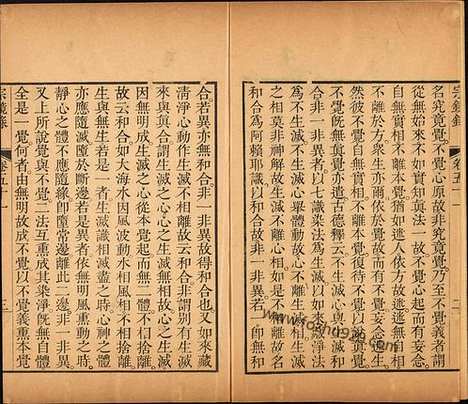 宗鏡錄
卷五十一
二
名究竟覺不覺心原故非究竟覺乃至不覺義者謂
從無始來不如實知真法一故不覺心起而有妄念
自無實相不離本覺猶如迷人依方故迷迷無自相
不離於方衆生亦爾依於覺故而有不覺妄念迷生
然彼不覺自無實相不離本覺復待不覺以說真覺
不覺既無真覺亦遣古德釋云不生不滅心與生滅和
合非一非異者以七識染法為生滅以如來藏淨法
為不生滅不生滅心舉體動故心不離生滅相生滅
之相莫非神解故生滅不離心相如是不相離故名
和合為阿賴耶識以和合故非一非異若一即無和
合若異亦無和合非一非異故得和合也又如來藏
清淨心動作生滅不相離故云和合非謂別有生滅
來與真合謂生滅之心心之生滅無二相故心之生滅
因無明成生滅之心從本覺起而無二體不相捨離
故云和合如大海水因風波動水相風相不相捨離
生與無生若是一者生滅識相滅盡之時心神之體
亦應隨滅墮於斷邊若是異者依無明風熏動之時
靜心之體不應隨緣即墮常邊離此二邊非一非異
又上所說覺與不覺二法互熏成其染淨既無自體
全是一覺何者由無明故成不覺以不覺義熏本覺
宗鏡錄
卷五十一
三